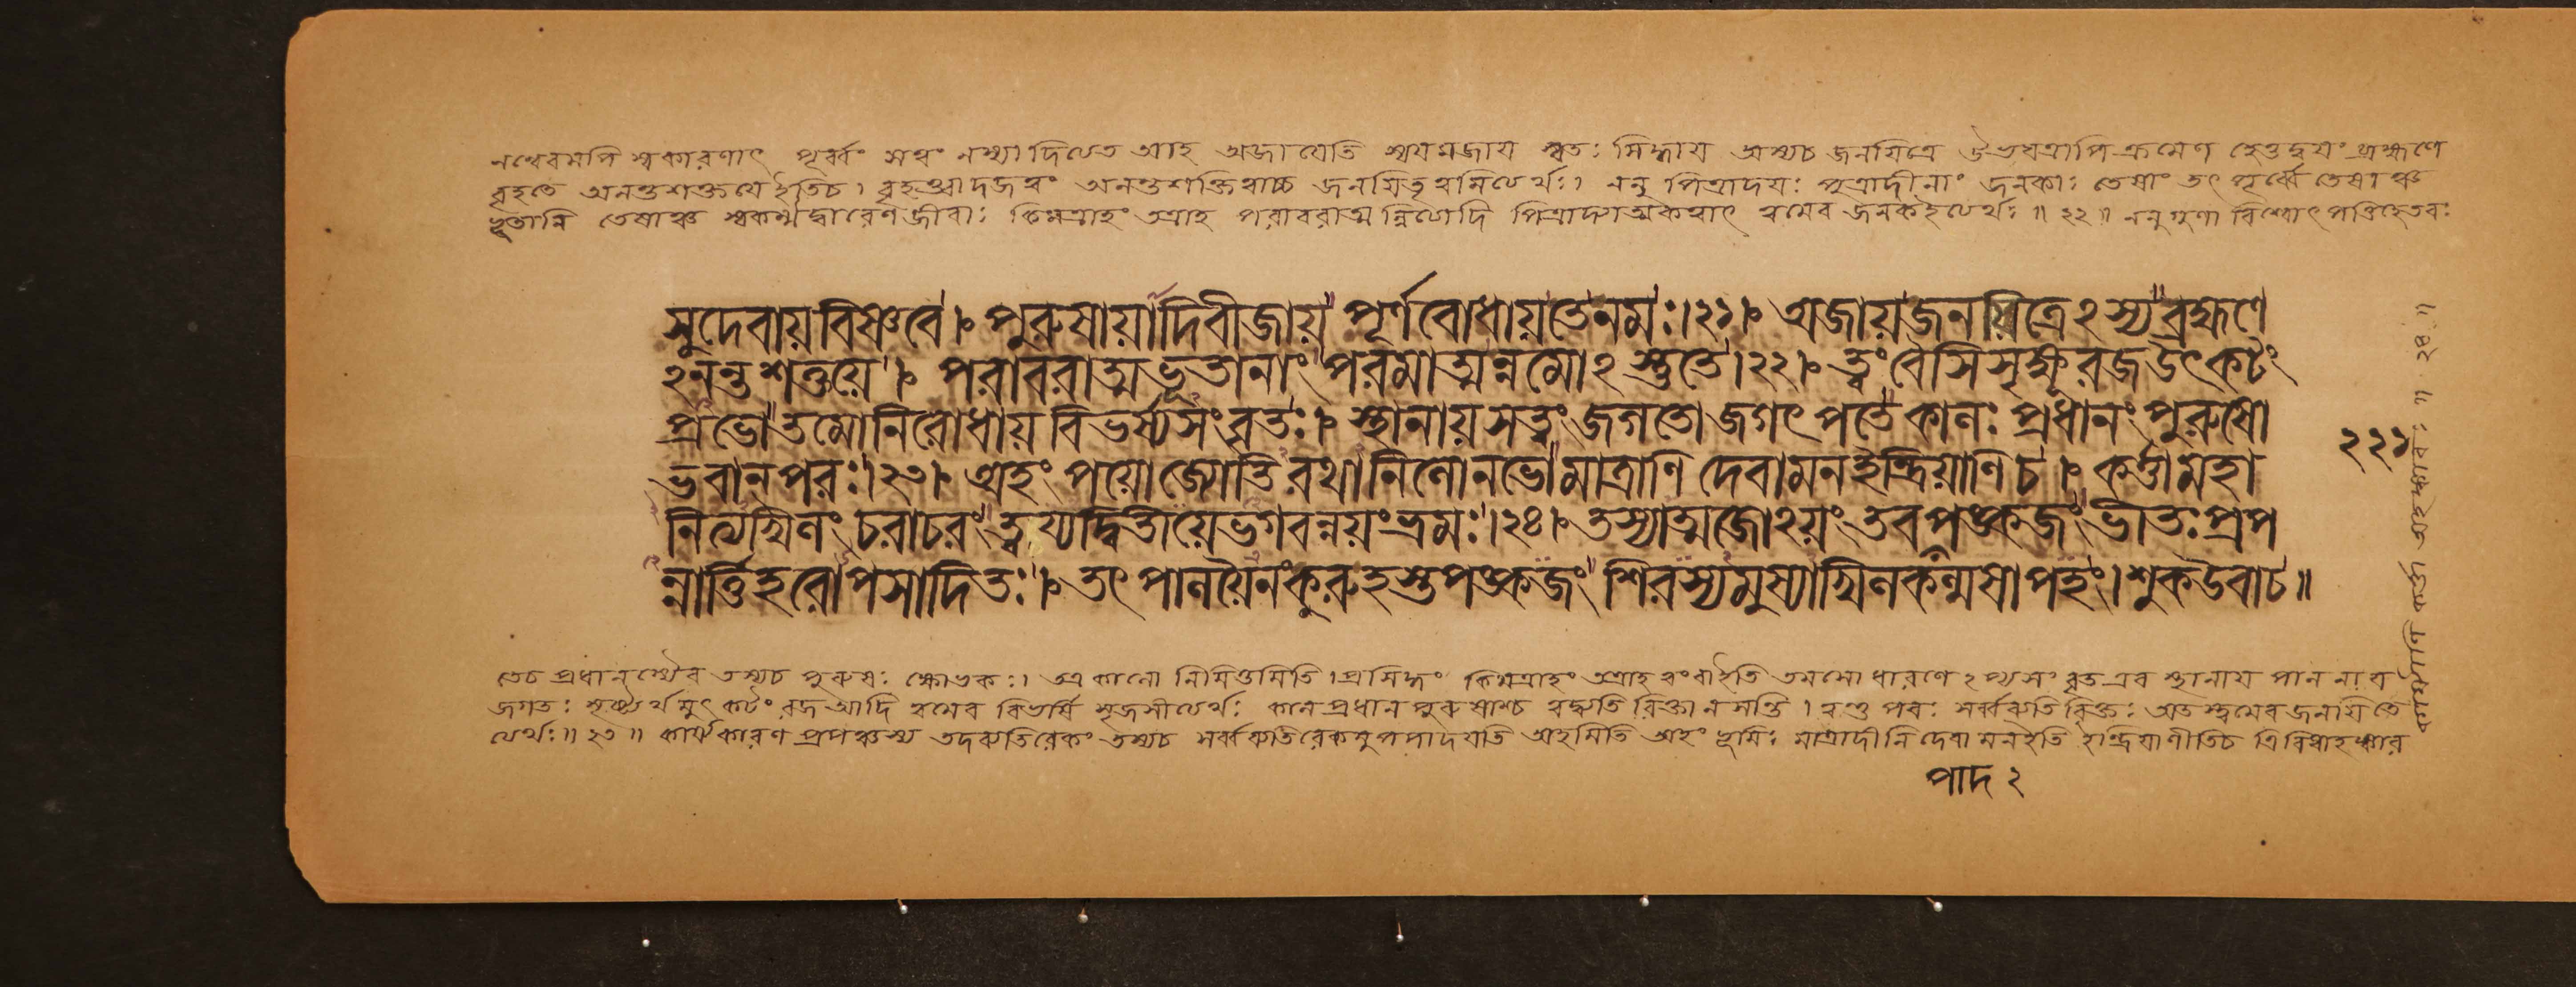 নন্বেবমপি স্বকারণাৎ পূর্ব্বং সত্বং নস্যাদিত্যত আহ অজায়েতি স্বয়মজায় স্বতঃ সিদ্ধায় অস্যচ জনয়িত্রে উভয়ত্রাপি ক্রমেণ হেতুদ্বয়ং ব্রহ্মণে
বৃহতে অনন্তশক্তয়ে ইতিচ। বৃহত্ত্বাদজত্বং অনন্তশক্তিত্বাচ্চ জনয়িতৃত্বমিত্যর্থঃ। ননু পিত্রাদয়ঃ পুত্রাদীনাং জনকাঃ তেষাং তৎ পূর্ব্বে তেষাঞ্চ
ভূতানি তেষাঞ্চ স্বকর্ম্মদ্বারেণ জীবাঃ কিমত্রাহং তত্রাহ পরাবরাত্মন্নিত্যাদি পিত্রাদ্যাত্মকত্বাৎ ত্বমেব জনকইত্যর্থঃ॥ ২২॥ ননু গুণা বিশ্বোৎপত্তিহেতবঃ
সুদেবায়বিষ্ণবে। পুরুষায়াদিবীজায় পূর্ণবোধায়তেনমঃ।২১। অজায়জনয়িত্রেঽস্যব্রহ্মণে
ঽনন্তশক্তয়ে। পরাবরাত্মভূতানাং পরমাত্মন্নমোঽস্তুতে।২২। ত্বংবৈসিসৃক্ষূরজউৎকটং
প্রভোতমোনিরোধায়বিভর্ষ্যসংবৃতঃ। স্থানায়সত্ত্বংজগতোজগৎপতেকালঃ প্রধানং পুরুষো
ভবানপরঃ।২৩। অহং পয়োজ্যোতিরথানিলোনভোমাত্রাণিদেবামনইন্দ্রিয়াণিচ। কর্ত্তামহা
নিত্যখিলং চরাচরং ত্বয্যদ্বিতীয়েভগবন্নয়ংভ্রমঃ।২৪। তস্যাত্মজোঽয়ং তবপঙ্কজং ভীতঃ প্রপ
ন্নার্ত্তিহরোপসাদিতঃ। তৎ পালয়ৈনংকুরুহস্তপঙ্কজং শিরস্যমুষ্যাখিলকল্মষাপহং। শুকউবাচ॥
২২১
কার্য্যাণি কর্ত্তা অহঙ্কারঃ॥ ২৪॥
তেচ প্রধানস্যৈব তস্যচ পুরুষঃ ক্ষোভকঃ। তত্র কালো নিমিত্তমিতি প্রসিদ্ধং কিমত্রাহং তত্রাহ ত্বংবাইতি তমসো ধারণে ঽপ্যসংবৃত এব স্থানায় পালনায়
জগতঃ সৃষ্ট্যর্থমুৎকটং রজ আদি ত্বমেব বিভর্ষি সৃজসীত্যর্থঃ কাল প্রধান পুরুষাশ্চ ত্বদ্ব্যতিরিক্তা ন সন্তি। ত্বন্তু পরঃ সর্ব্বব্যতিরিক্তঃ অত স্ত্বমেব জনয়িতে
ত্যর্থঃ॥ ২৩॥ কার্য্যকারণ প্রপঞ্চস্য তদব্যতিরেকং তস্যচ সর্ব্বব্যতিরেকমুপপাদয়তি অহমিতি অহং ভূমিঃ মাত্রাদীনি দেবা মনইতি ইন্দ্রিয়াণীতিচ ত্রিবিধাহঙ্কার
পাদ ২